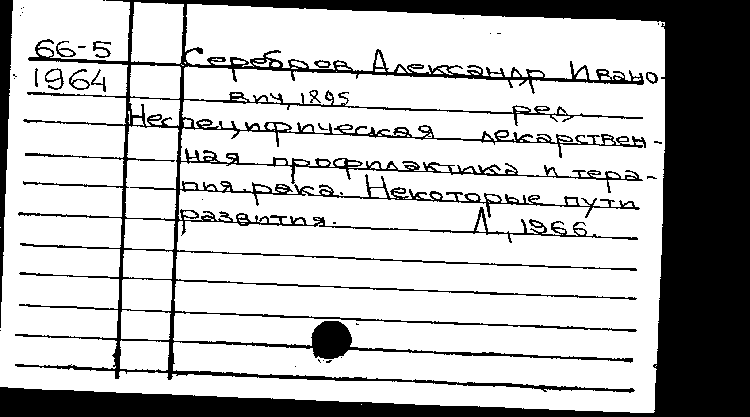 66-5 Серебров, Александр Ивано-
1964 вич, 1895 ред.
Неспецифическая лекарствен-
ная профилактика и тера-
пия рака. Некоторые пути
развития. Л., 1966.